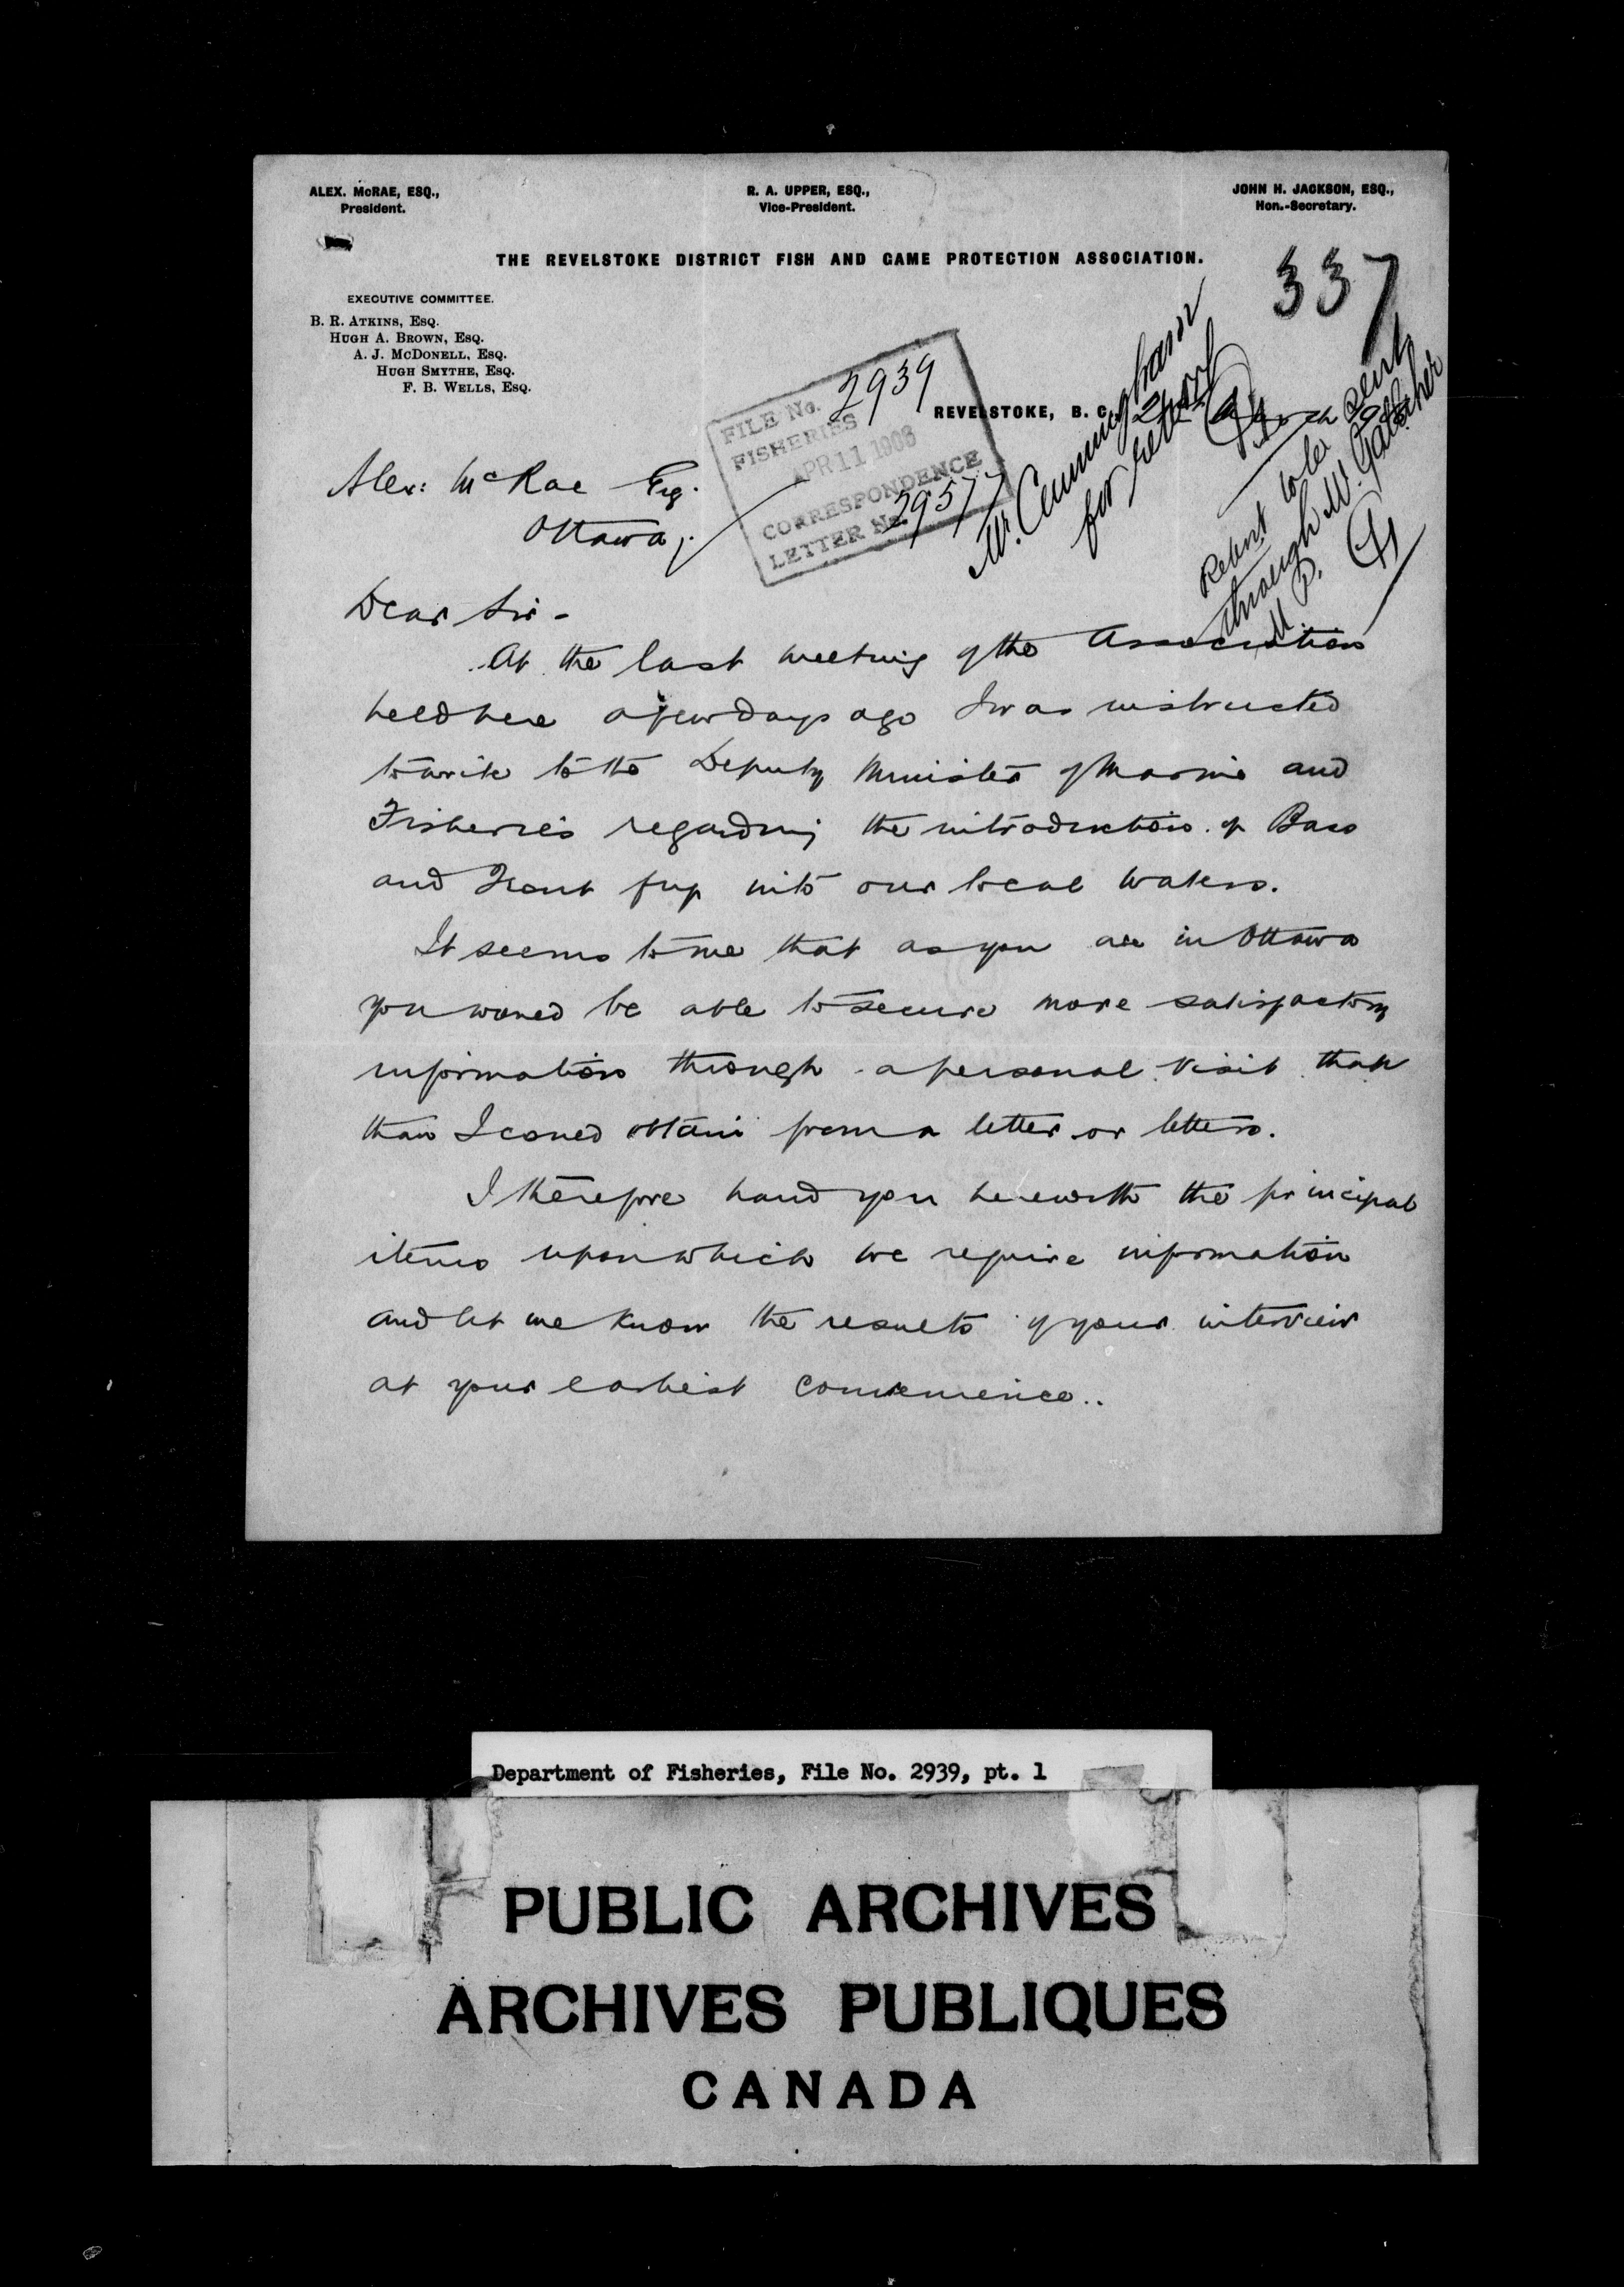 ALEX. McRAE, ESQ.,
President.
R. A. UPPER, ESQ.,
Vice-President.
JOHN H. JACKSON, ESQ.,
Hon.-Secretary.
THE REVELSTOKE DISTRICT FISH AND GAME PROTECTION ASSOCIATION.
337
EXECUTIVE COMMITTEE.
B. R. ATKINS, ESQ.
HUGH A. BROWN, ESQ.
A. J. McDONELL, ESQ.
HUGH SMYTHE, ESQ.
F. B. WELLS, ESQ.
FILE No. 2939
FISHERIES
APR 11 1908
CORRESPONDENCE
LETTER No. 29577
REVELSTOKE, B. C.
Mr. Cunningham
for report
Report to be sent
through Mr. Galliher
M. P.
Alex: McRae Esq.
Ottawa,
Dear Sir -
At the last meeting of the Association
held here a few days ago I was instructed
to write to the Deputy Minister of Marine and
Fisheries regarding the introduction of Bass
and Trout fry into our local waters.
It seems to me that as you are in Ottawa
you would be able to secure more satisfactory
information through a personal visit than
than I could obtain from a letter or letters.
I therefore hand you herewith the principal
items upon which we require information
and let me know the results of your interview
at your earliest convenience..
Department of Fisheries, File No. 2939, pt. 1
PUBLIC ARCHIVES
ARCHIVES PUBLIQUES
CANADA